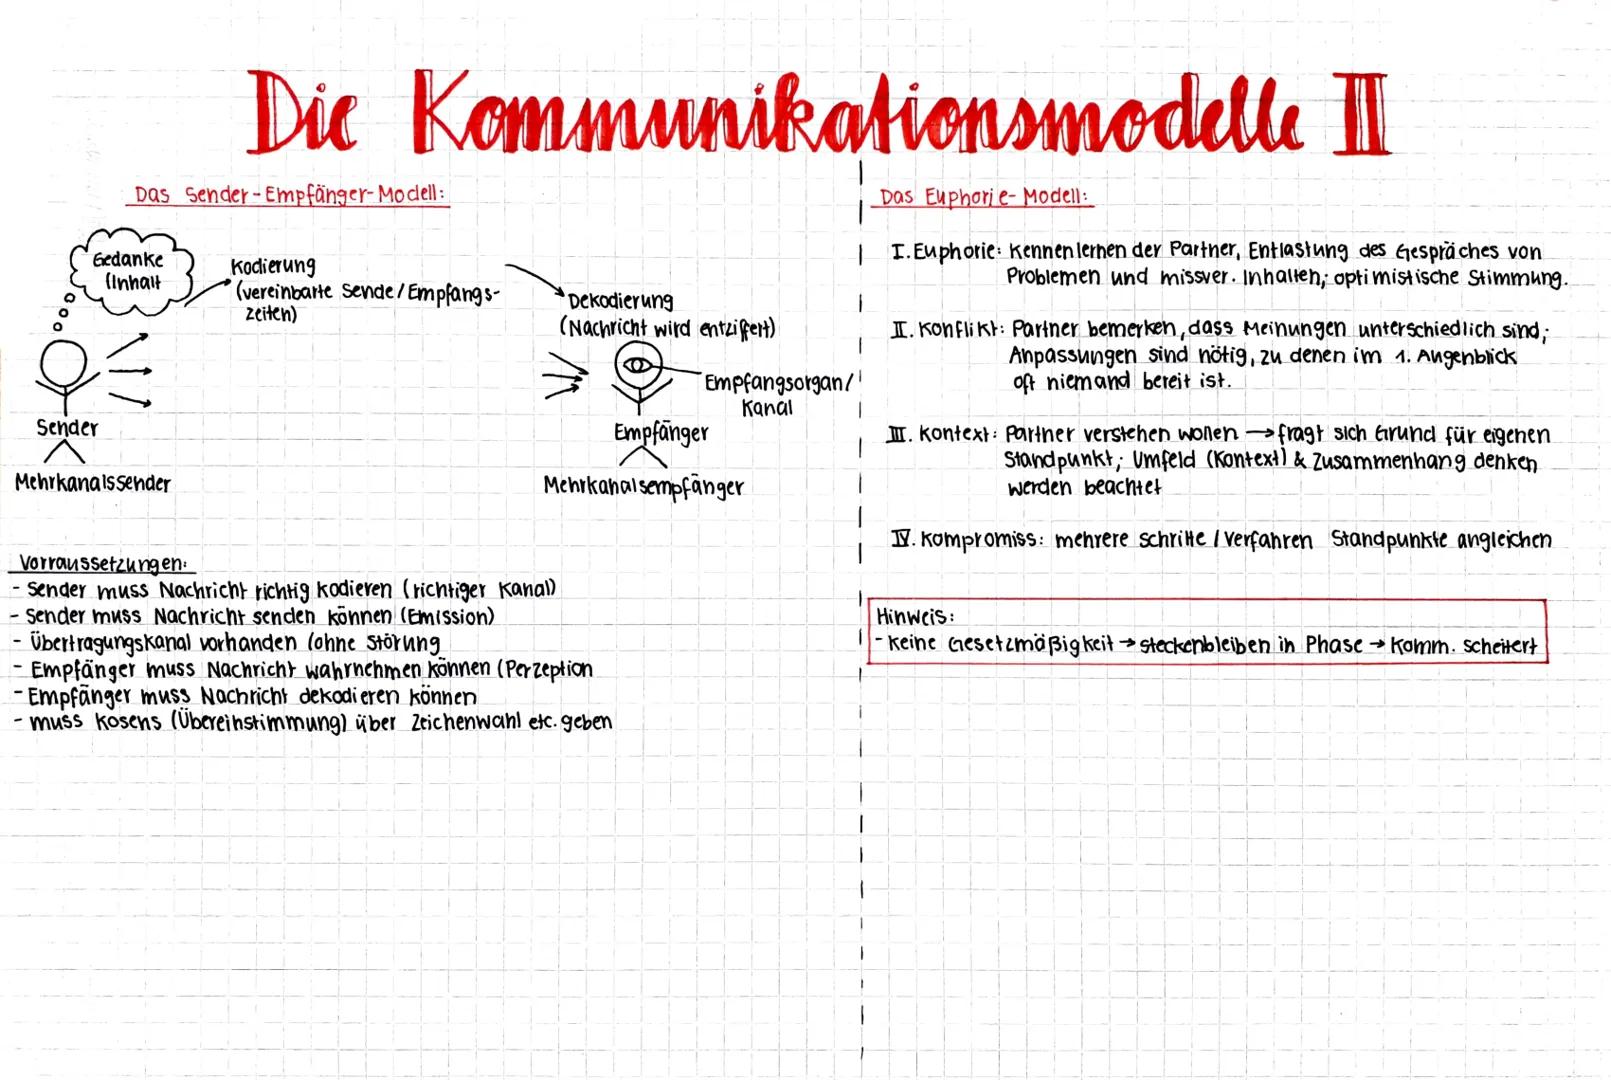 Die Kommunikationsmodelle III
Das Sender-Empfänger-Modell:
Gedanke
(Inhalt
Kodierung
(vereinbarte Sende/Empfangs-
zeiten)
Dekodierung
(Nachricht wird entziffert)
Empfangsorgan/
Kanal
Sender
Empfänger
Mehrkanalssender
Mehrkanalsempfänger
Vorraussetzungen:
- Sender muss Nachricht richtig kodieren (richtiger Kanal)
- Sender muss Nachricht senden können (Emission)
- Übertragungskanal vorhanden (ohne Störung
- Empfänger muss Nachricht wahrnehmen können (Perzeption
- Empfänger muss Nachricht dekodieren können
- muss Kosens (Übereinstimmung) über Zeichenwahl etc. geben
Das Euphorie-Modell:
I. Euphorie: Kennenlernen der Partner, Entlastung des Gespräches von
Problemen und missver. Inhalten; optimistische Stimmung.
II. Konflikt: Partner bemerken, dass Meinungen unterschiedlich sind;
Anpassungen sind nötig, zu denen im 1. Augenblick
oft niemand bereit ist.
III. Kontext: Partner verstehen wollen → fragt sich Grund für eigenen
Standpunkt; Umfeld (Kontext) & Zusammenhang denken
werden beachtet
IV. Kompromiss: mehrere schritte / Verfahren Standpunkte angleichen
Hinweis:
- keine Gesetzmäßigkeit → steckenbleiben in Phase → Komm. scheitert